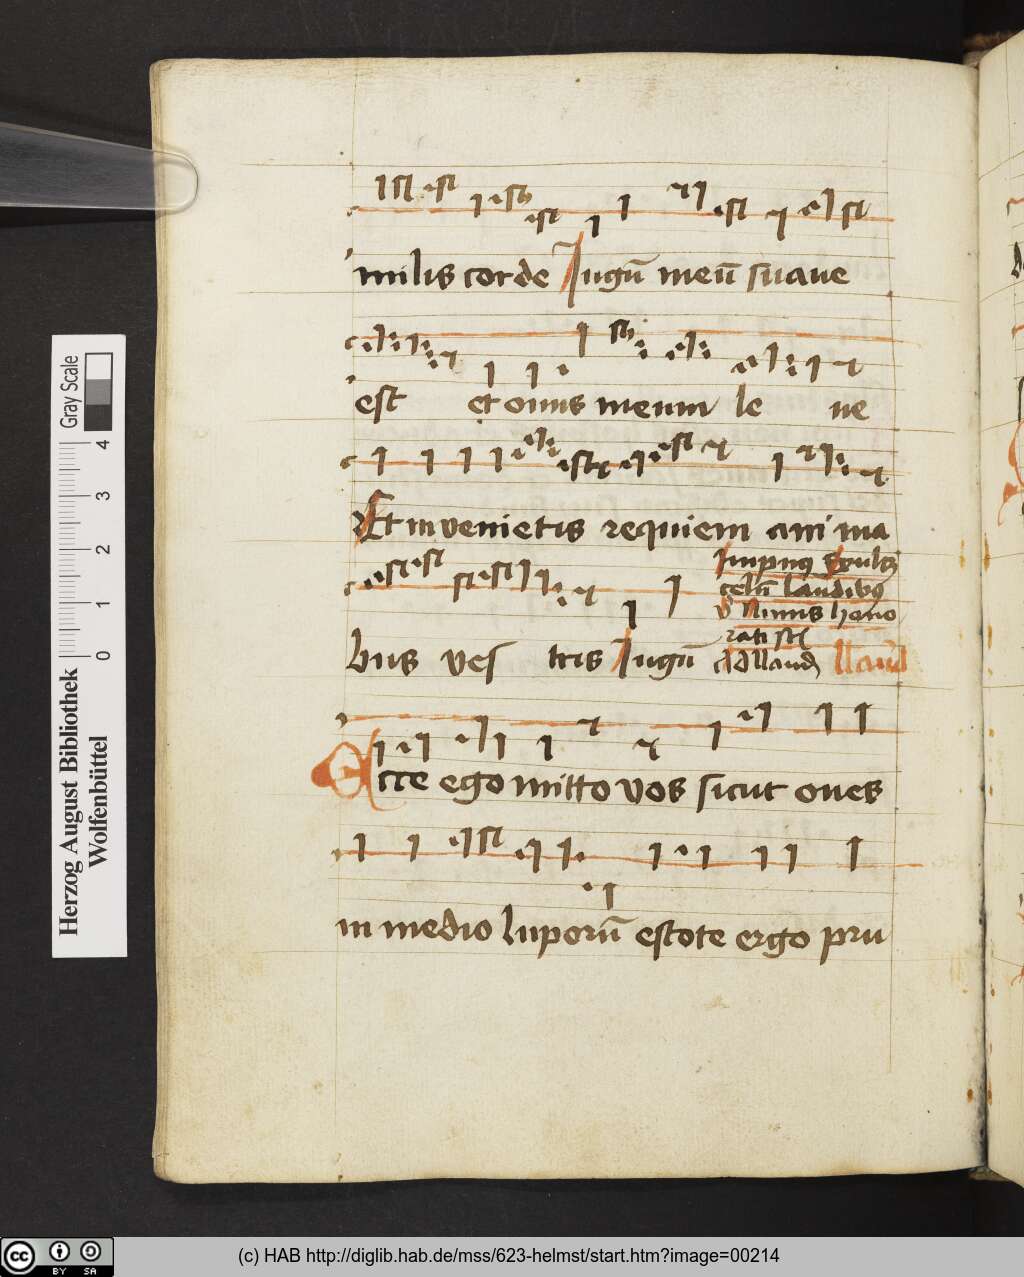 milis corde Jugū meū suaue
est et onus meum le ue
Et invenietis requiem ani ma
bus ves tris Jugū
celū laudibꝰ
Nimis hono
rati st
Ecce ego mitto vos sicut oues
in medio luporū estote ergo pru
Herzog August Bibliothek
Wolfenbüttel
Gray Scale
0 1 2 3 4
(c) HAB http://diglib.hab.de/mss/623-helmst/start.htm?image=00214
cc BY SA